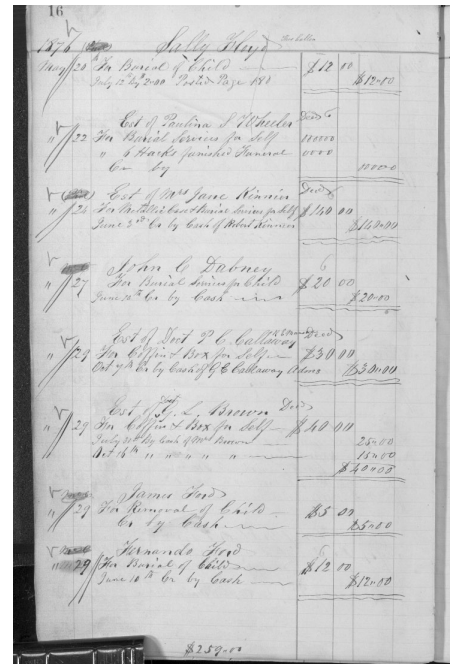 16
1876 Sally Floyd
May 20th For Burial of Child $12 00
July 12th By 2.00 Posted Page 180 $12.00
Est of Paulina S Wheeler Decd
" 22 For Burial Services for Self 0000
" 6 Hacks furnished Funeral 0000
Cr by 0000
Est of Mrs Jane Kinnin Decd
" 26 For Metallic Case & Burial Services for Self $140 00
June 3rd Cr by Cash of Robert Kinnin $140.00
John C Dabney
" 27 For Burial Services for Child $20 00
June 10th Cr by Cash $20.00
Est of Doct P. C. Callaway Decd
" 29 For Coffin & Box for Self $30 00
Oct 7th Cr by Cash of G E Callaway Adms $30.00
Est of G. L. Brown Decd
" 29 For Coffin & Box for Self $40 00
July 21st By Cash of Mrs Brown 25.00
Oct 16th " " " " 15.00
$40.00
James Ford
" 29 For Removal of Child $5 00
Cr by Cash $5.00
Fernando Ford
" 29 For Burial of Child $12 00
June 10th Cr by Cash $12.00
$259.00